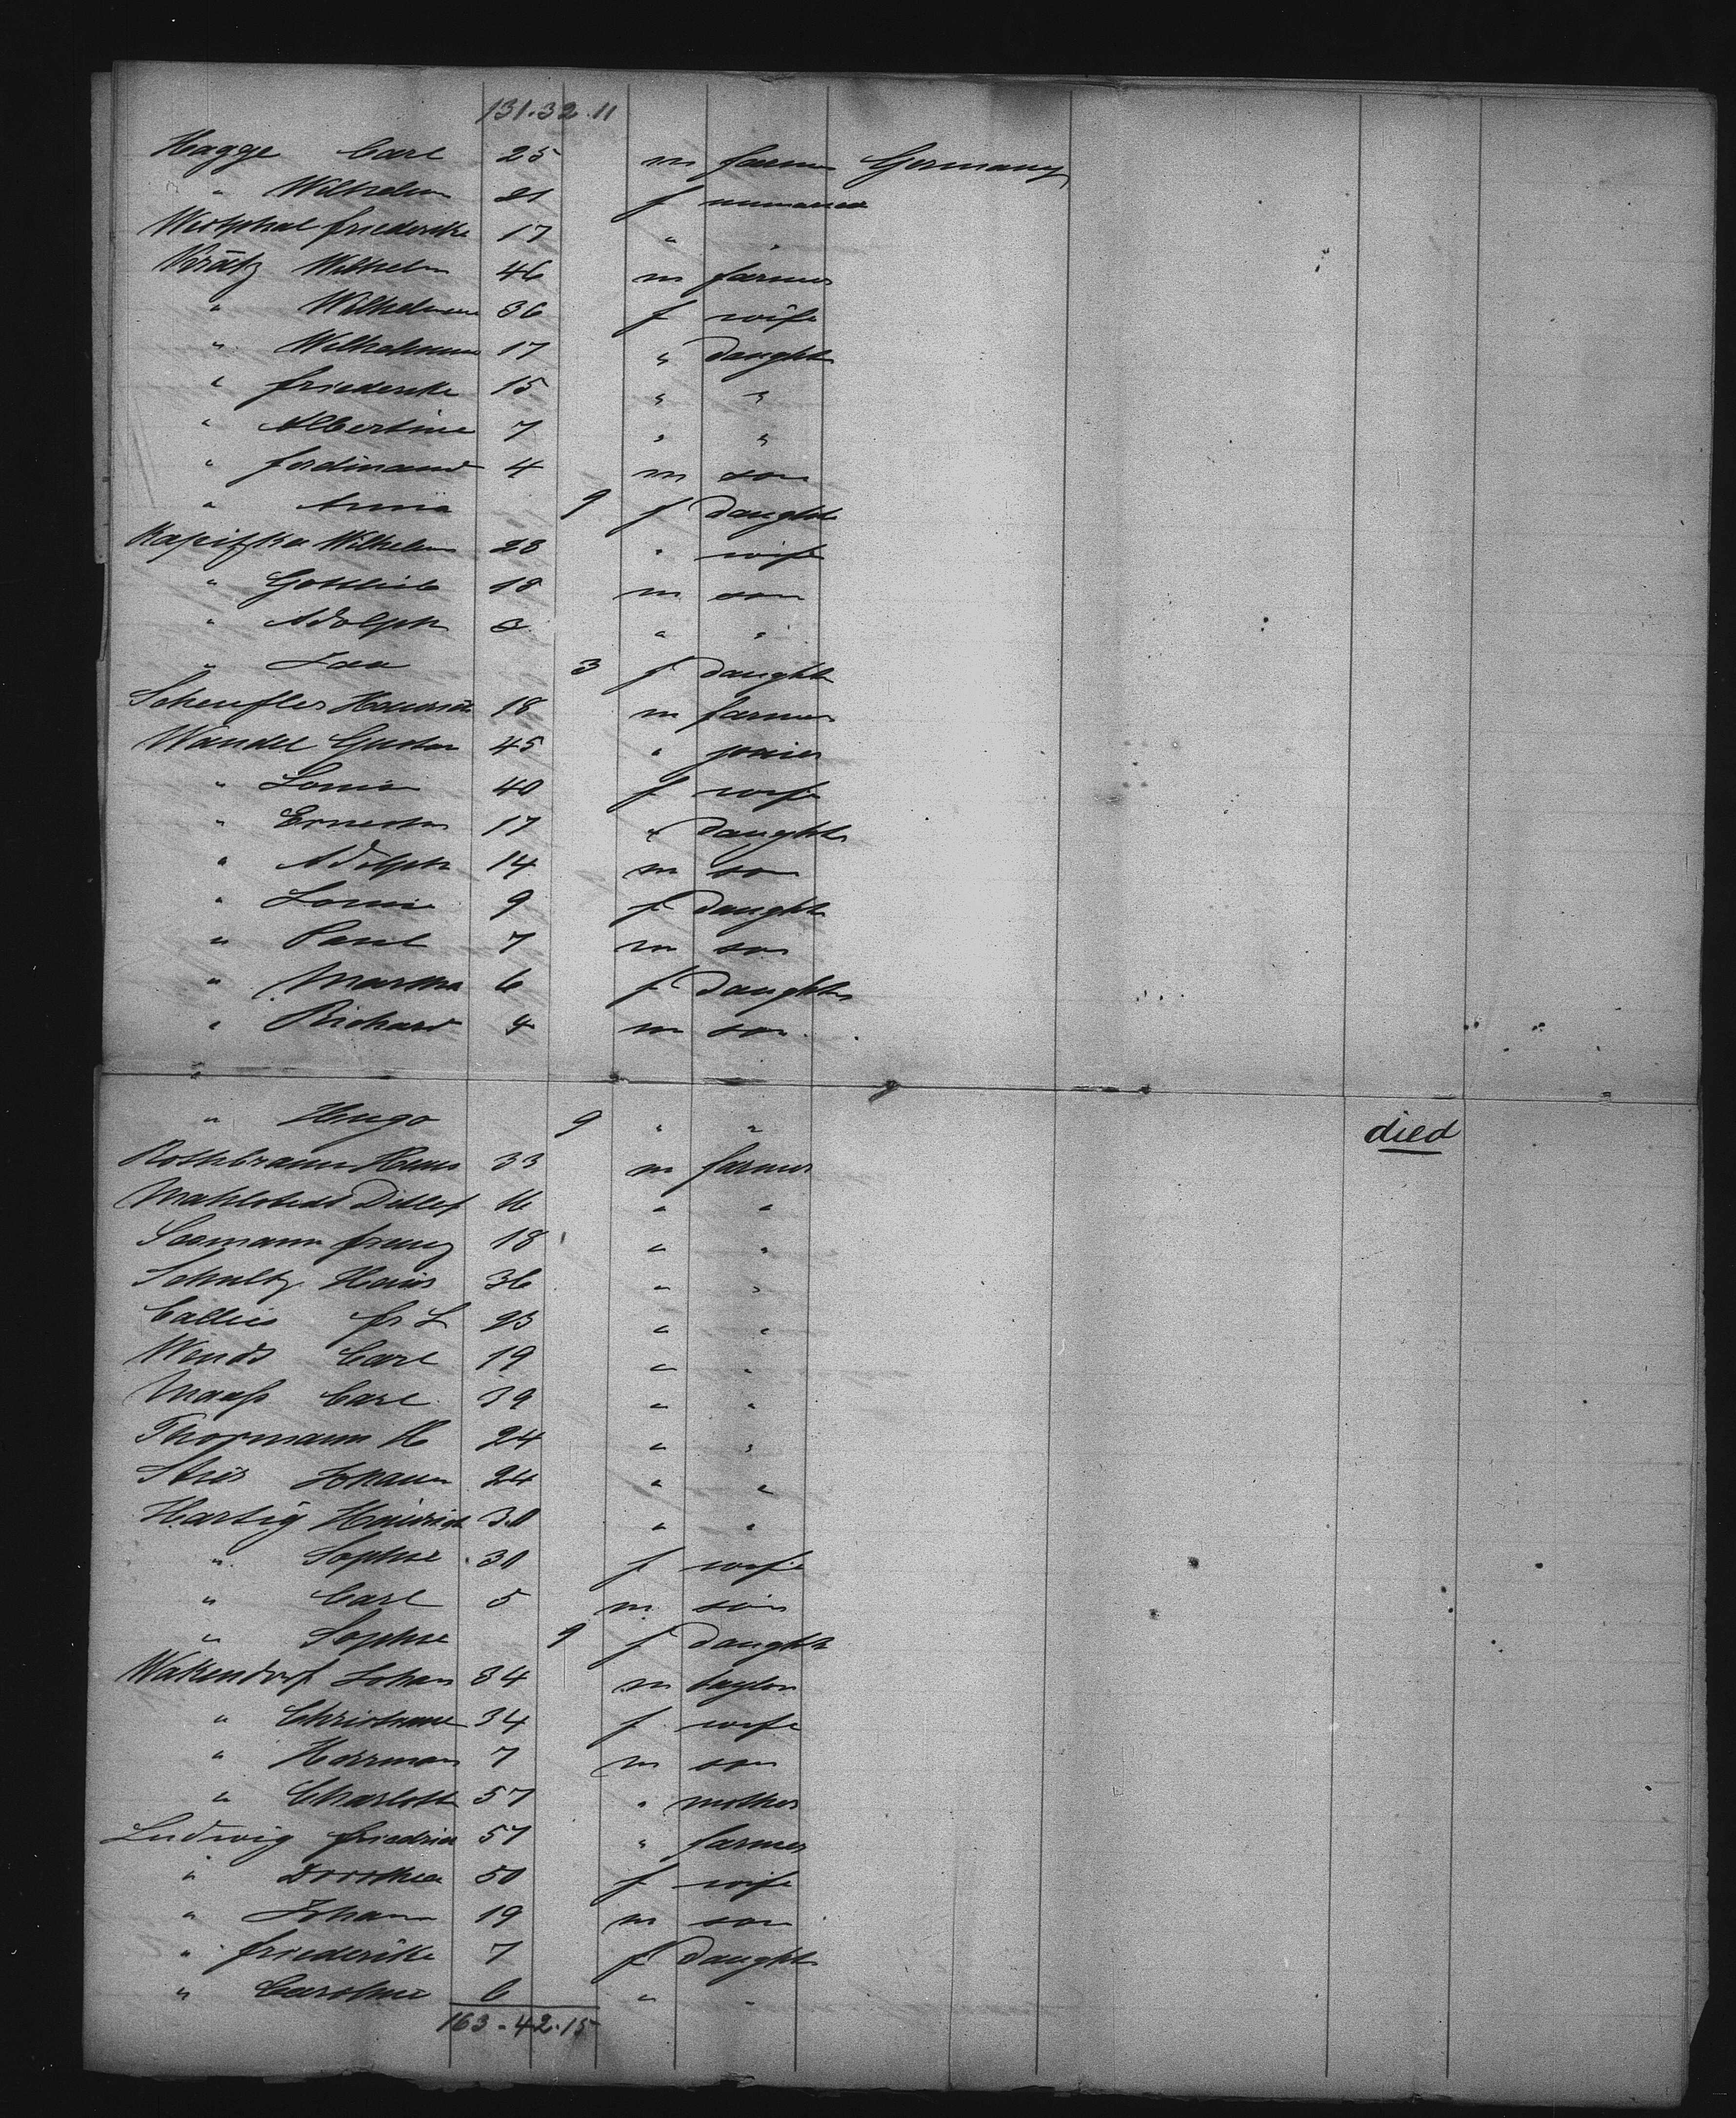 131.32.11
Hagge Carl 25 m farmer Germany
" Wilhelm 21 f unmarried
Westphal Friederike 17 " "
Krätz Wilhelm 46 m farmer
" Wilhelmine 36 f wife
" Wilhelmine 17 " daught
" Friederike 15 " "
" Albertine 7 " "
" Ferdinand 4 m son
" Anna 9 f daught
Wilhelm 28 " wife
" Gottlieb 18 m son
" Adolph " "
" Ida 3 f daught
Scheufler Heinrich 18 m farmer
Wandel Gustav 45 " joiner
" Louise 40 f wife
" Ernestine 17 " daught
" Adolph 14 m son
" Louise 9 f daught
" Paul 7 m son
" Martha 6 f daughter
" Richard 4 m son
" Hugo 9 " " died
Rothbraum Hans 33 m farmer
Mahlstedt Detlef 16 " "
Seemann Franz 18 " "
Schultz Hans 36 " "
Callies Fr L 23 " "
Wendt Carl 19 " "
Maaß Carl 39 " "
Thormann H 24 " "
Johann 24 " "
Hartig Heinrich 30 " "
" Sophie 30 f wife
" Carl 5 m son
" Sophie 9 f daught
Wakendorf Johan 34 m taylor
" Christiane 34 f wife
" Herrman 7 m son
" Charlotte 57 " mother
Ludwig Friedrich 57 " farmer
" Dorothea 50 f wife
" Johann 19 m son
" Friederike 7 f daught
" Caroline 6 " "
163-42-15